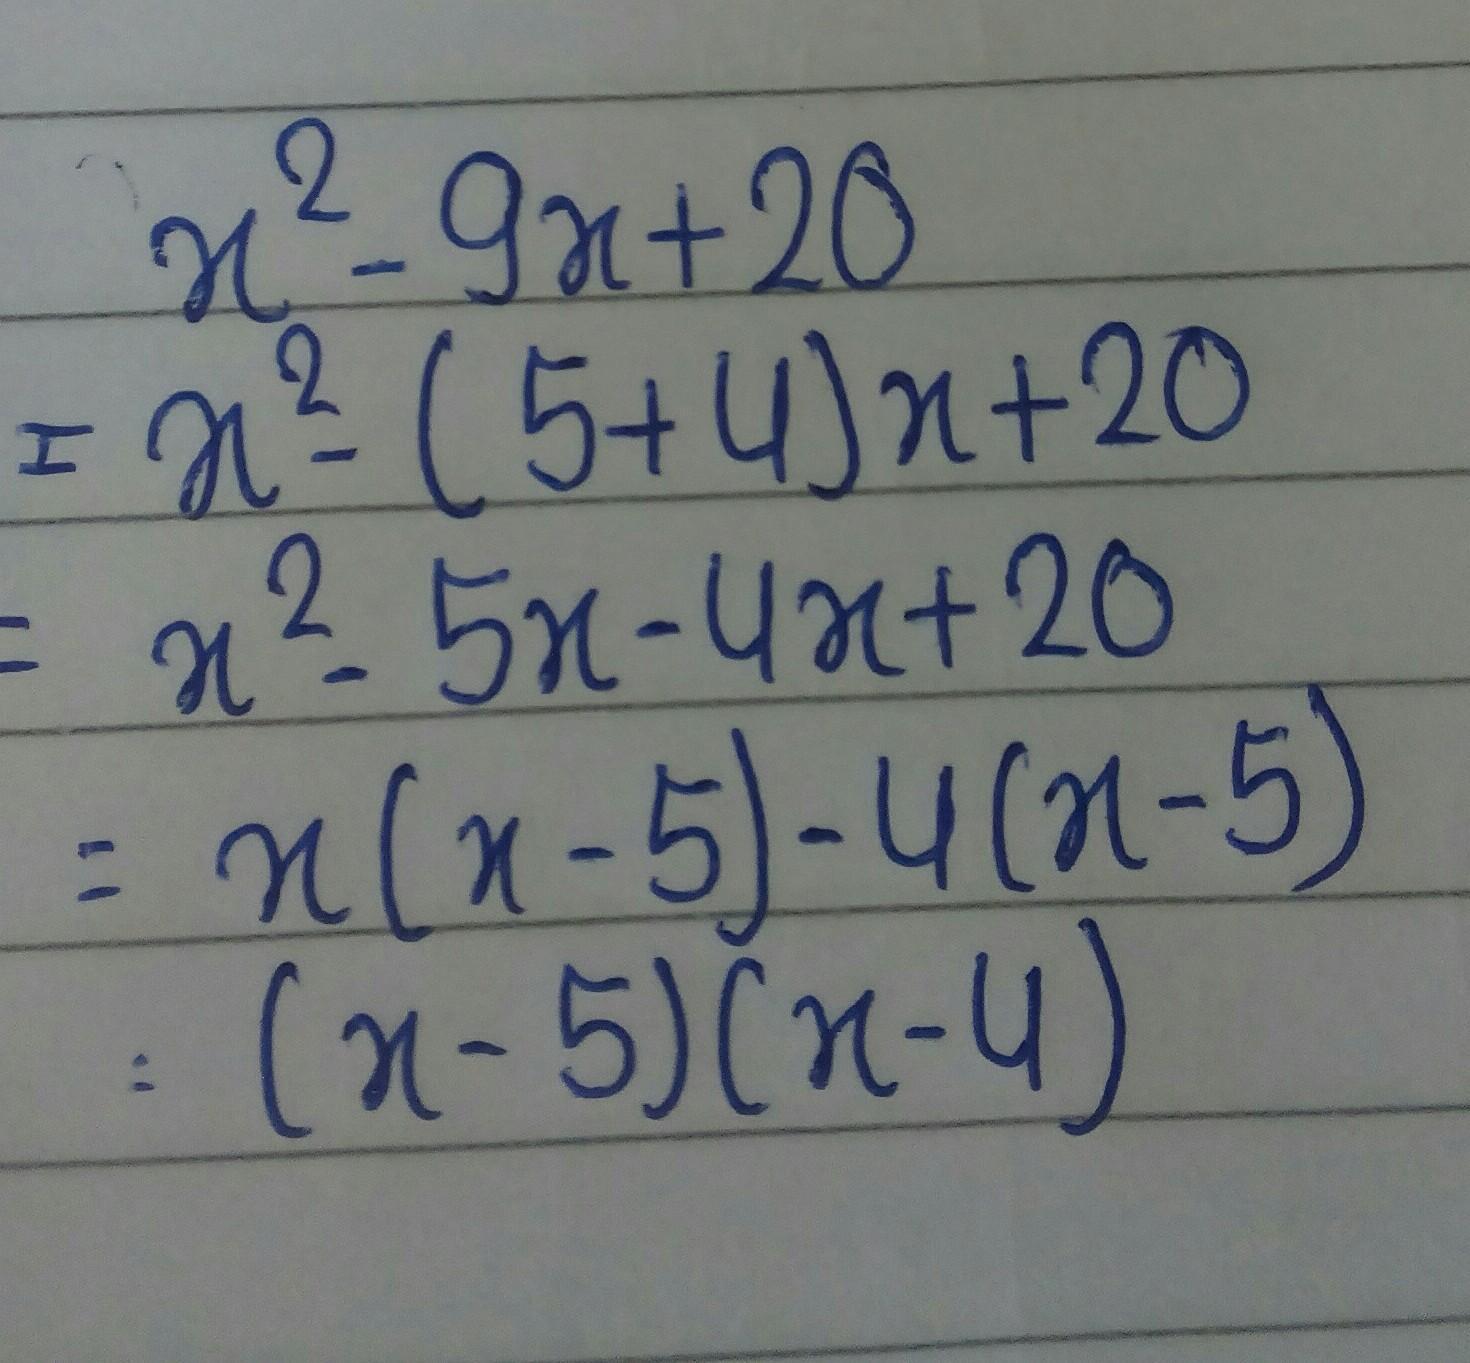 x² - 9x + 20
= x² - (5+4)x + 20
= x² - 5x - 4x + 20
= x(x - 5) - 4(x - 5)
= (x - 5)(x - 4)